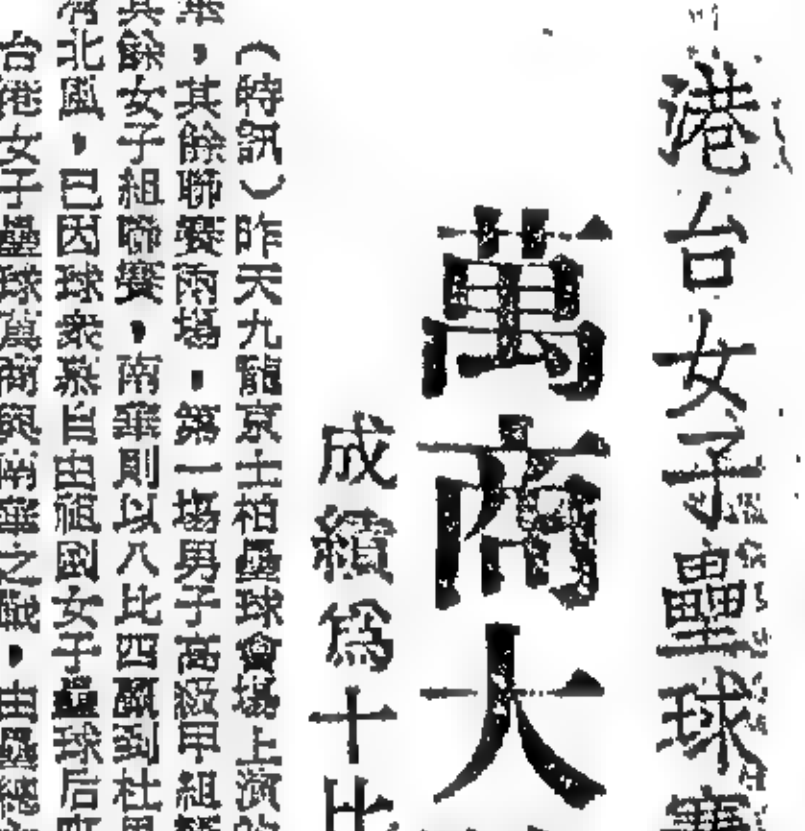 港台女子壘球賽
萬商大
成績爲十比
（特訊）昨天九龍京士柏壘球會場上演
華，其餘聯賽兩場，第一場男子高級甲組
其餘女子組聯賽，南華則以八比四贏到杜
灣北風，已因球衆慕自由祖國女子壘球后
台港女子壘球萬商與南華之戰，由壘總